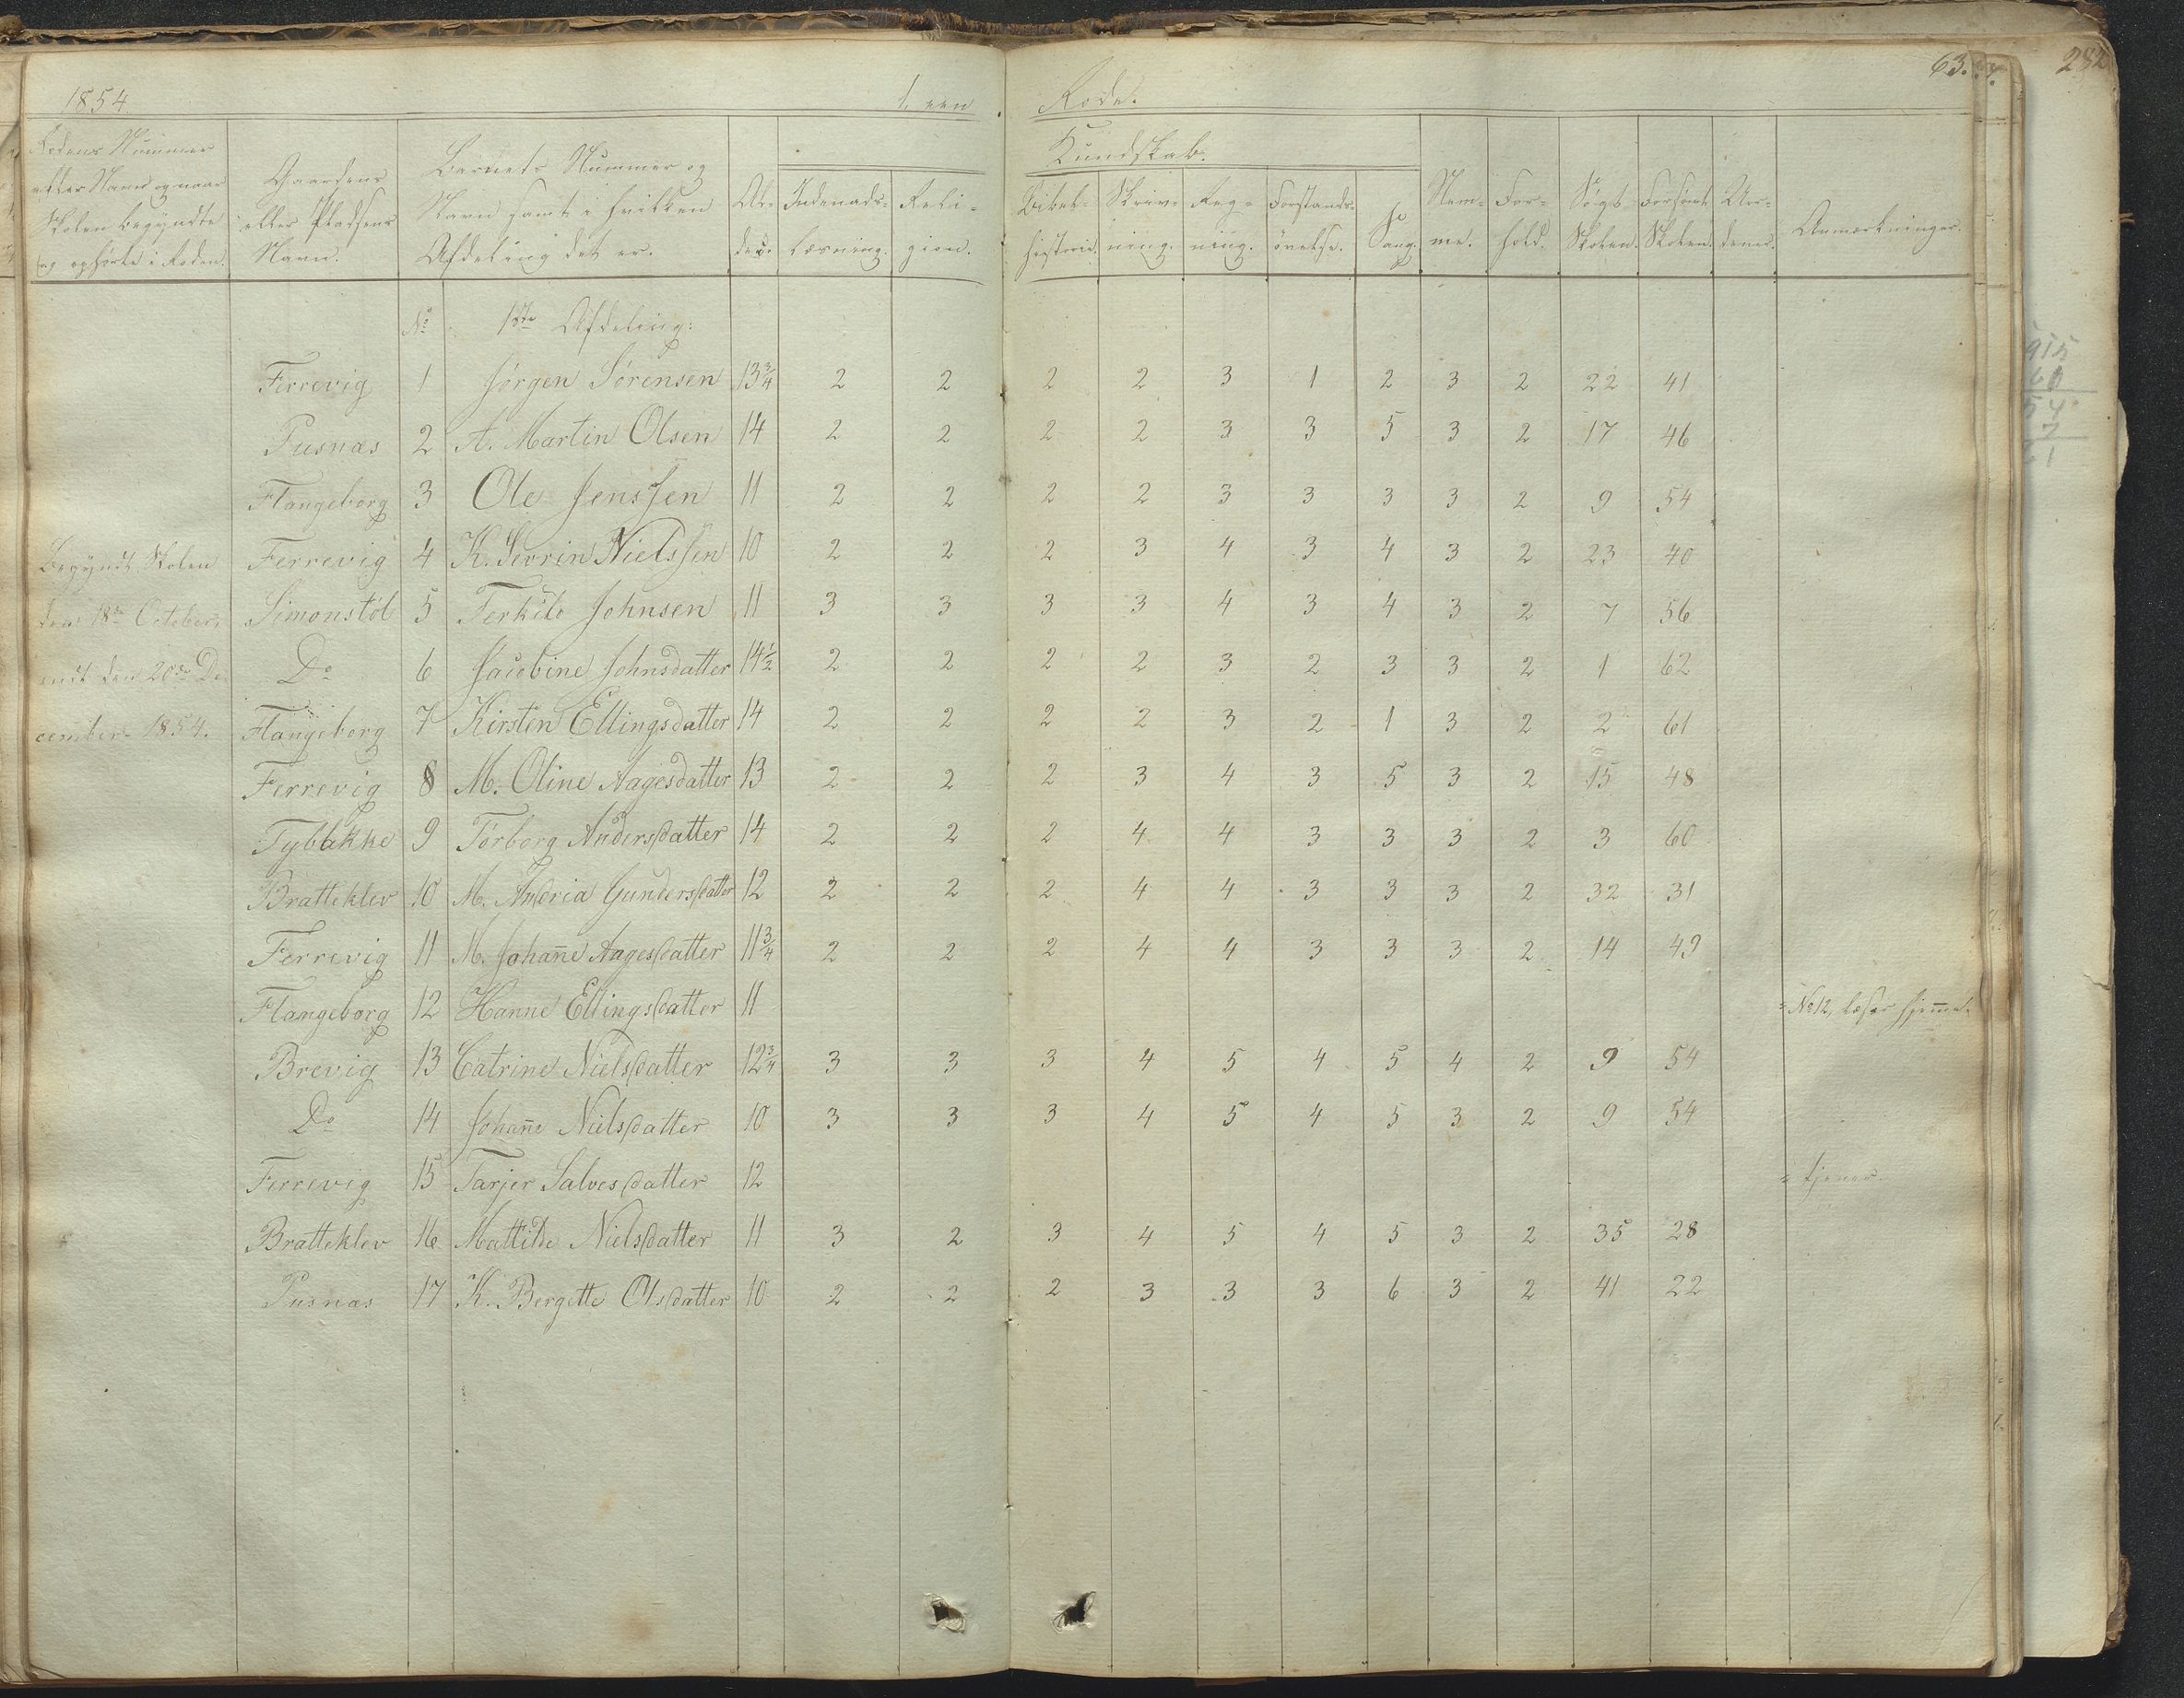 63.
282
1854
1. een Rode.
Rodens Nummer eller Navn og naar Skolen begyndte og ophørte i Roden.
Gaardens eller Pladsens Navn.
Barnets Nummer og Navn samt i hvilken Afdeling det er.
Al-der.
Kundskab.
Indenads-læsning.
Reli-gion.
Bibel-historie.
Skriv-ning.
Reg-ning.
Forstands-øvelse.
Sang.
Nem-me.
For-hold.
Søgt Skolen.
Forsømt Skolen.
Anmærkninger.
No 1ste Afdeling:
Ferrevig 1 Jørgen Sørensen 13 3/4 2 2 2 2 3 1 2 3 2 22 41
Pusnæs 2 A. Martin Olsen 14 2 2 2 2 3 3 5 3 2 17 46
Flangeborg 3 Ole Jenssen 11 2 2 2 2 3 3 3 3 2 9 54
Begyndt Skolen Ferrevig 4 K. Sevrin Nielssen 10 2 2 2 3 4 3 4 3 2 23 40
den 18de October, Simonstøl 5 Terkild Johnsen 11 3 3 3 3 4 3 4 3 2 7 56
endt den 20de De- Do 6 Jacobine Johnsdatter 14 1/2 2 2 2 2 3 2 3 3 2 1 62
cember 1854. Flangeborg 7 Kirsten Ellingsdatter 14 2 2 2 2 3 2 1 3 2 2 61
Ferrevig 8 M. Oline Aagesdatter 13 2 2 2 3 4 3 5 3 2 15 48
Tybakke 9 Tørborg Andersdatter 14 2 2 2 4 4 3 3 3 2 3 60
Bratteklev 10 M. Andria Gundersdatter 12 2 2 2 4 4 3 3 3 2 32 31
Ferrevig 11 M. Johan̄e Aagesdatter 11 3/4 2 2 2 4 4 3 3 3 2 14 49
Flangeborg 12 Hanne Ellingsdatter 11 = No 12, læser hjem̄e.
Brevig 13 Catrine Nielsdatter 12 3/4 3 3 3 4 5 4 5 4 2 9 54
Do 14 Johan̄e Nielsdatter 10 3 3 3 4 5 4 5 3 2 9 54
Ferrevig 15 Tarjer Salvesdatter 12 = tjener.
Bratteklev 16 Mattilde Nielsdatter 11 3 2 3 4 5 4 5 3 2 35 28
Pusnæs 17 K. Bergette Olsdatter 10 2 2 2 3 3 3 6 3 2 41 22